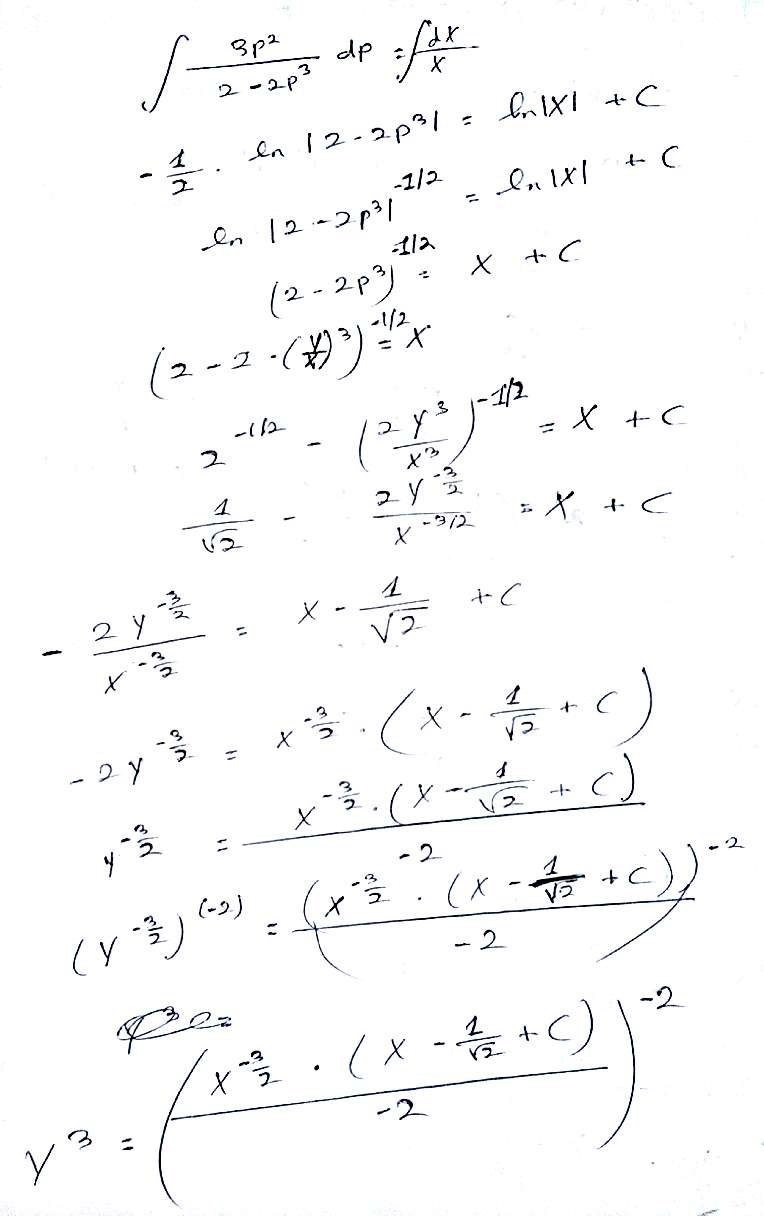 ∫ 3p² / (2 - 2p³) dp = ∫ dx / x
- 1/2 . ln |2 - 2p³| = ln|x| + C
ln |2 - 2p³|^(-1/2) = ln|x| + C
(2 - 2p³)^(-1/2) = x + C
(2 - 2 · (y/x)³)^(-1/2) = x
2^(-1/2) - (2y³ / x³)^(-1/2) = x + C
1/√2 - 2y^(-3/2) / x^(-3/2) = x + C
- 2y^(-3/2) / x^(-3/2) = x - 1/√2 + C
-2y^(-3/2) = x^(-3/2) · (x - 1/√2 + C)
y^(-3/2) = x^(-3/2) · (x - 1/√2 + C) / -2
(y^(-3/2))^(-2) = (x^(-3/2) · (x - 1/√2 + C) / -2)^(-2)
y³ = (x^(-3/2) · (x - 1/√2 + C) / -2)^(-2)